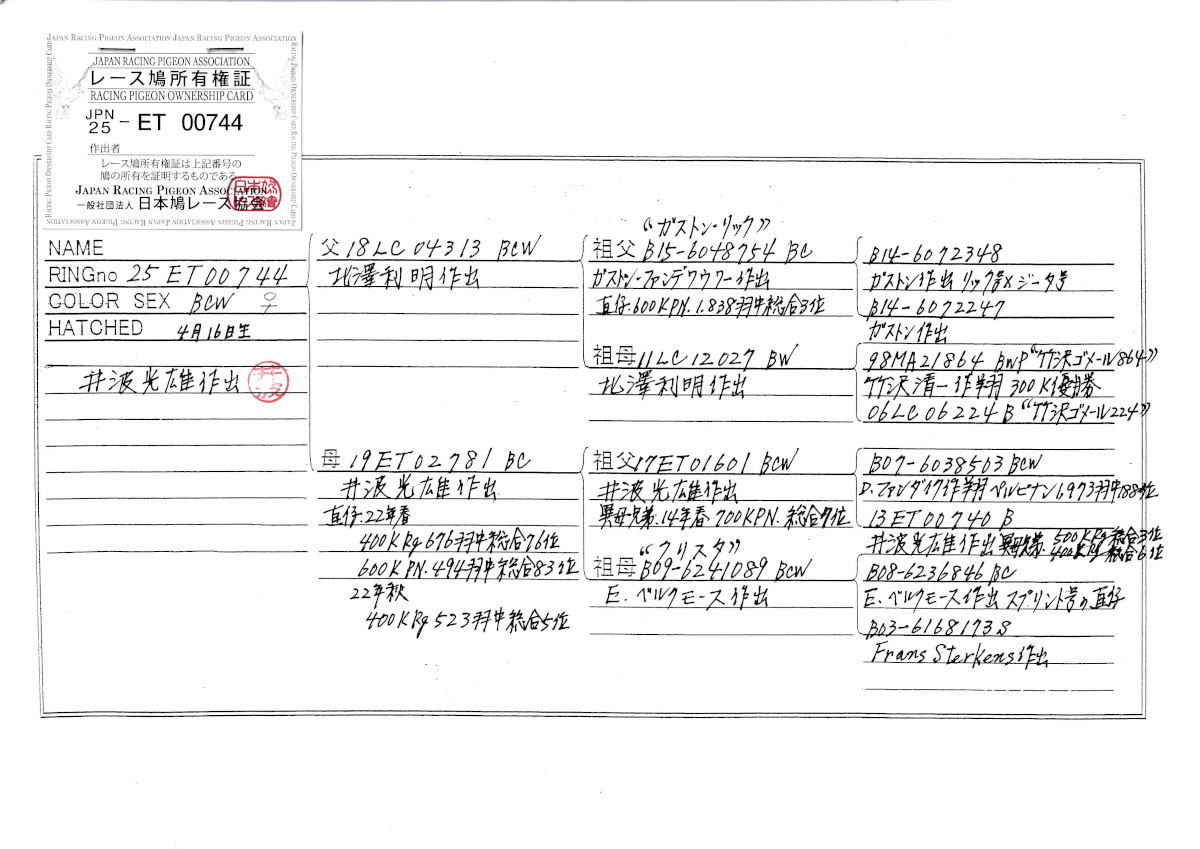 JAPAN RACING PIGEON ASSOCIATION JAPAN RACING PIGEON ASSOCIATION
JAPAN RACING PIGEON ASSOCIATION
レース鳩所有権証
RACING PIGEON OWNERSHIP CARD
JPN
25 - ET 00744
作出者
レース鳩所有権証は上記番号の
鳩の所有を証明するものである。
JAPAN RACING PIGEON ASSOCIATION
一般社団法人 日本鳩レース協会
NAME
RINGno 25ET00744
COLOR SEX BCW ♀
HATCHED 4月16日生
井波光雄作出
父 18LC04313 BCW
北澤利明作出
母 19ET02781 BC
井波光雄作出
直仔.22年春
400KRg676羽中総合76位
600KPN.494羽中総合83位
22年秋
400KRg523羽中総合5位
"ガストン・リック"
祖父 B15-6048754 BC
ガストン・ファンデワウワー作出
直仔.600KPN.1.838羽中総合3位
祖母 11LC12027 BW
北澤利明作出
祖父 17ET01601 BCW
井波光雄作出
異母兄弟.14年春700KPN.総合7位
"クリスタ"
祖母 B09-6241089 BCW
E.ベルクモース作出
B14-6072348
ガストン作出 リック号×ジータ号
B14-6072247
ガストン作出
98MA21864 BWP "竹沢ゴメール864"
竹沢清一作翔 300K優勝
06LC06224 B "竹沢ゴメール224"
B07-6038503 BCW
D.ファンダイク作翔 ペルピナン6973羽中188位
13ET00740 B
井波光雄作出 異母兄弟.500KRg総合3位
400KRg総合6位
B08-6236846 BC
E.ベルクモース作出 スプリント号の直仔
B03-6168173
Frans Sterkens作出